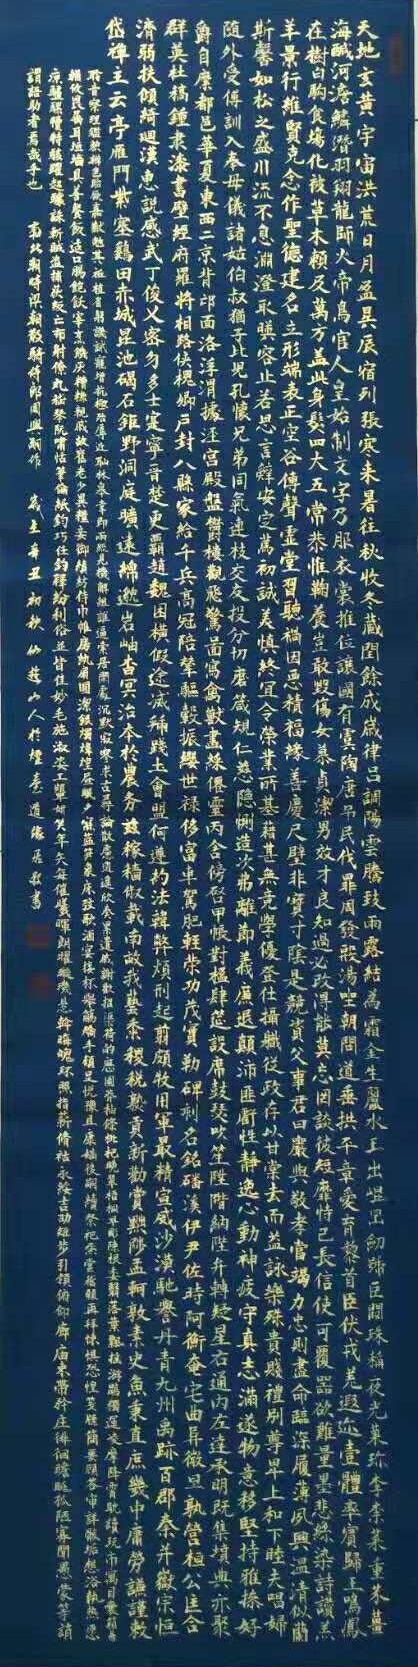 天地玄黃宇宙洪荒日月盈昃辰宿列張寒来暑往秋收冬藏閏餘成歲律呂調陽雲騰致雨露結為霜金生麗水玉出崑岡劍號巨闕珠稱夜光菓珍李柰菜重芥薑
海鹹河淡鱗潛羽翔龍師火帝鳥官人皇始制文字乃服衣裳推位讓國有虞陶唐吊民伐罪周發殷湯坐朝問道垂拱平章愛育黎首臣伏戎羌遐邇壹體率賓歸王鳴鳳
在樹白駒食場化被草木賴及萬方蓋此身髮四大五常恭惟鞠養豈敢毀傷女慕貞潔男效才良知過必改得能莫忘罔談彼短靡恃己長信使可覆器欲難量墨悲絲染詩讚羔
羊景行維賢克念作聖德建名立形端表正空谷傳聲虛堂習聽禍因惡積福緣善慶尺璧非寶寸陰是競資父事君曰嚴與敬孝當竭力忠則盡命臨深履薄夙興溫凊似蘭
斯馨如松之盛川流不息淵澄取暎容止若思言辭安定篤初誠美慎終宜令榮業所基籍甚無竟學優登仕攝職從政存以甘棠去而益詠樂殊貴賤禮別尊卑上和下睦夫唱婦
隨外受傅訓入奉母儀諸姑伯叔猶子比兒孔懷兄弟同氣連枝交友投分切磨箴規仁慈隱惻造次弗離節義廉退顛沛匪虧性靜情逸心動神疲守真志滿逐物意移堅持雅操好
爵自縻都邑華夏東西二京背邙面洛浮渭據涇宮殿盤鬱樓觀飛驚圖寫禽獸畫綵仙靈丙舍傍啟甲帳對楹肆筵設席鼓瑟吹笙陞階納陛弁轉疑星右通廣內左達承明既集墳典亦聚
群英杜稿鍾隸漆書壁經府羅將相路俠槐卿戶封八縣家給千兵高冠陪輦驅轂振纓世祿侈富車駕肥輕策功茂實勒碑刻銘磻溪伊尹佐時阿衡奄宅曲阜微旦孰營桓公匡合
濟弱扶傾綺迴漢惠說感武丁俊乂密勿多士寔寧晉楚更霸趙魏困橫假途滅虢踐土會盟何遵約法韓弊煩刑起翦頗牧用軍最精宣威沙漠馳譽丹青九州禹跡百郡秦并嶽宗恒
岱禪主云亭雁門紫塞雞田赤城昆池碣石鉅野洞庭曠遠綿邈岩岫杳冥治本於農務茲稼穡俶載南畝我藝黍稷稅熟貢新勸賞黜陟孟軻敦素史魚秉直庶幾中庸勞謙謹敕
聆音察理鑒貌辨色貽厥嘉猷勉其祗植省躬譏誡寵增抗極殆辱近恥林皋幸即兩疏見機解組誰逼索居閒處沉默寂寥求古尋論散慮逍遙欣奏累遣慼謝歡招渠荷的歷園莽抽條枇杷晚翠梧桐早凋陳根委翳落葉飄颻游鵾獨運凌摩絳霄耽讀玩市寓目囊箱易
輶攸畏屬耳垣牆具膳餐飯適口充腸飽飫烹宰飢厭糟糠親戚故舊老少異糧妾御績紡侍巾帷房紈扇圓潔銀燭煒煌晝眠夕寐藍筍象床弦歌酒讌接杯舉觴矯手頓足悅豫且康嫡後嗣續祭祀烝嘗稽顙再拜悚懼恐惶牋牒簡要顧答審詳骸垢想浴執熱愿
涼驢騾犢特駭躍超驤誅斬賊盜捕獲叛亡布射僚丸嵇琴阮嘯恬筆倫紙鈞巧任釣釋紛利俗並皆佳妙毛施淑姿工顰妍笑年矢每催曦暉朗曜璇璣懸斡晦魄環照指薪修祜永綏吉劭矩步引領俯仰廊廟束帶矜莊徘徊瞻眺孤陋寡聞愚蒙等誚
謂語助者焉哉乎也 南北朝時梁朝散騎侍郎周興嗣作 歲在辛丑初秋仙遊山人於煙臺道緣居敬書